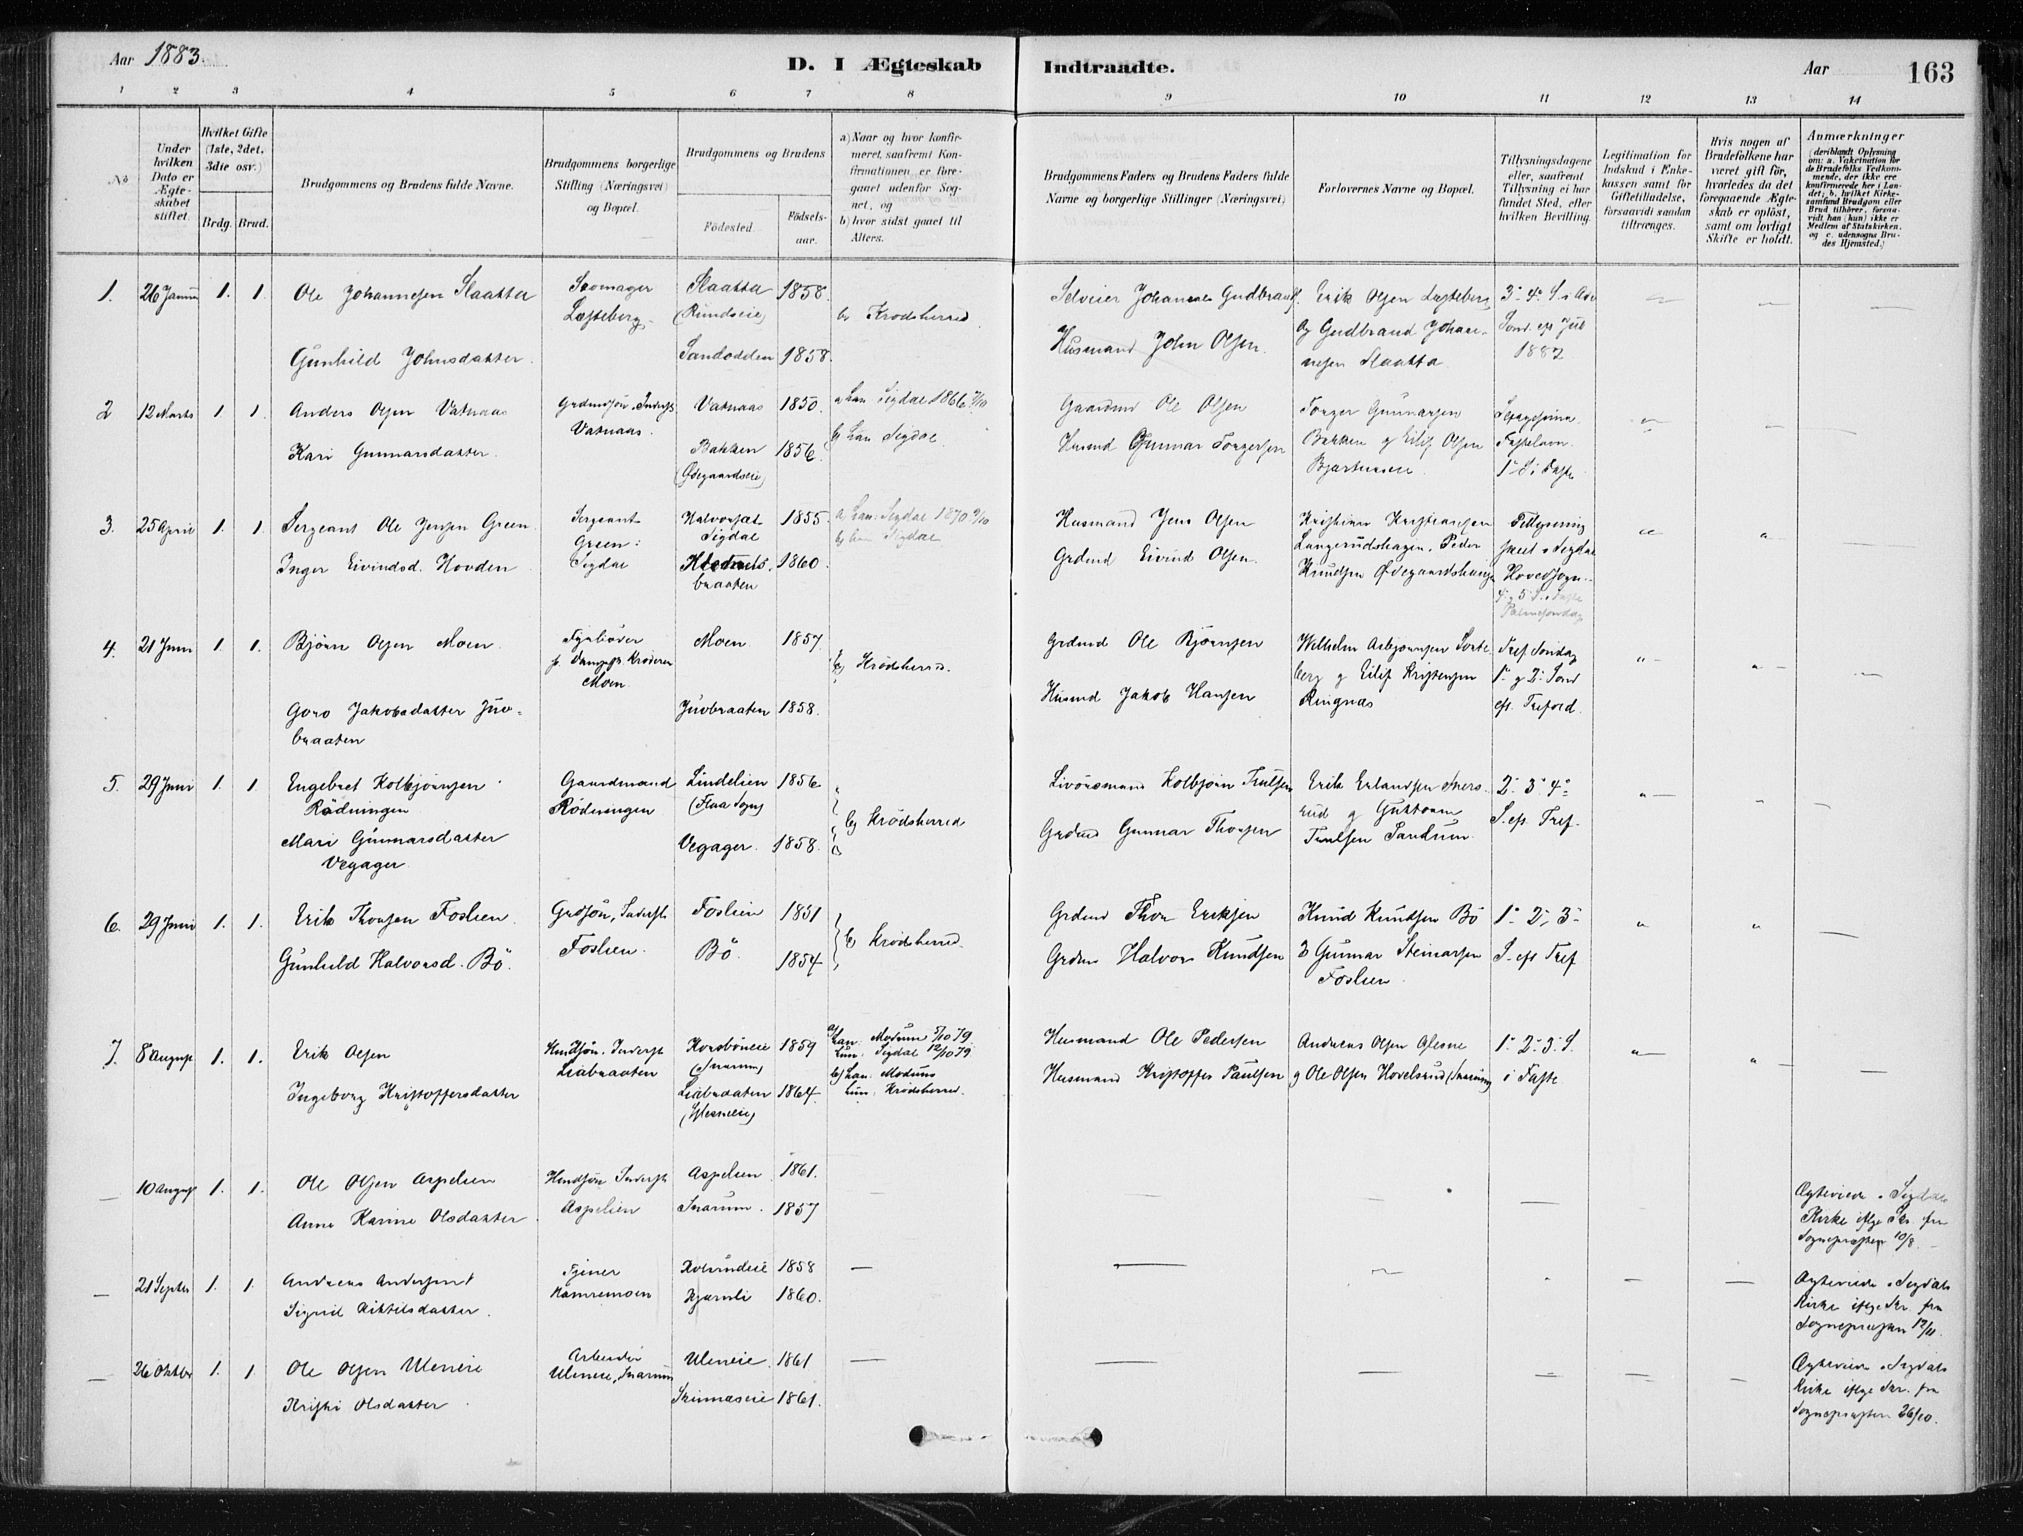 Aar 1883.
D. I Ægteskab Indtraadte.
Aar
163
1 2 3 4 5 6 7 8 9 10 11 12 13 14
No
Under hvilken Dato er Ægteskabet stiftet.
Hvilket Gifte (1ste, 2det, 3die osv.)
Brdg. Brud.
Brudgommens og Brudens fulde Navne.
Brudgommens borgerlige Stilling (Næringsvei) og Bopæl.
Brudgommens og Brudens
Fødested.
Fødsels-aar.
a) Naar og hvor konfirmeret, saafremt Konfirmationen er foregaaet udenfor Sognet, og
b) hvor sidst gaaet til Alters.
Brudgommens Faders og Brudens Faders fulde Navne og borgerlige Stillinger (Næringsvei)
Forlovernes Navne og Bopæl.
Tillysningsdagene eller, saafremt Tillysning ei har fundet Sted, efter hvilken Bevilling.
Legitimation for Indskud i Enkekassen samt for Giftetilladelse, forsaavidt saadan tiltrænges.
Hvis nogen af Brudefolkene har været gift før, hvorledes da det foregaaende Ægteskab er opløst, samt om lovligt Skifte er holdt.
Anmærkninger
(deriblandt Oplysning om: a. Vakcination for de Brudefolks Vedkommende, der ikke ere konfirmerede her i Landet; b. hvilket Kirkesamfund Brudgom eller Brud tilhører, forsaavidt han (hun) ikke er Medlem af Statskirken, og c. udensogns Brudes Hjemsted.)
1. 26 Januar 1. 1. Ole Johannesen Slaatta
Skomager Lesteberg.
Slaatta 1858.
b, Krødsherred.
Selveier Johannes Gudbrands.
Erik Olsen Lesteberg og Gudbrand Johannesen Slaatta
1882
Gunhild Johnsdatter.
Sandodden 1858.
Husmand John Olsen.
2 12 Marts 1. 1. Anders Olsen Vatnaas
Vatnaas.
Vatnaas 1850.
a, han Sigdal 1866
b, han Sigdal.
Gaardmd Ole Olsen
Torger Gunnarsen Bakken og Eilif Olsen
Fastelavn.
Kari Gunnarsdatter.
Bakken (Ødegaardseie) 1856.
Husmd Gunnar Torgersen
3. 25 April 1. 1. Sergeant Ole Jensen Green
Sergeant Green: Sigdal
Sigdal 1855.
a, han: Sigdal 1870
Husmand Jens Olsen
Kristian Kristiansen Langerudshagen, Peder Knudsen
Tillysning skeet i Sigdal Hovedsogn.
Palmesøndag
Inger Eivindsd. Hovden
braaten 1860.
Grdmd Eivind Olsen.
4. 21 Juni 1. 1. Bjørn Olsen Moen
Fyrbøder Moen
Moen 1857
b, Krødsherred.
Grdmd Ole Bjørnsen
Wilhelm Asbjørnsen og Eilif Kristensen Ringnæs
Tref Søndag 1' g 2' Sønd ef. Trefold.
Goro Jakobsdatter Juvbraaten
Juvbraaten 1858.
Husmd Jakob Hansen
5. 29 Juni 1. 1. Engebret Kolbjørnsen Rødningen
Gaardmand Rødningen
Lindelien (Flaa Sogn) 1856
b, Krødsherred
Kolbjørn Trulsen
Erik Erlandsen og Guttorm Trulsen Sandum
2' 3' 4' S. ef. Tref.
Mari Gunnarsdatter Vegager.
Vegager. 1858.
Grdmd Gunnar Thorsen
6. 29 Juni 1. 1. Erik Thorsen Foslien.
Foslien.
Foslien 1851
b, Krødsherred.
Grdmd Thor Eriksen
Knud Knudsen Bö & Gunnar Steinarsen Foslien
1' 2', 3' S. eft Tref
Gunhild Halvorsd. Bö.
Bö. 1854
Grdmd Halvor Knudsen
7. 8 August 1. 1. Erik Olsen
Liabraaten
(Snarum) 1859
a, han: Modum 5/10 79
hun: Sigdal 12/10 79
b, han: Modum
hun: Krødsherred.
Husmand Ole Pedersen
Andreas Olsen Glesne og Ole Olsen Hovelsrud (Snarum)
1' 2' 3' S. i Faste
Ingeborg Kristoffersdatter
Liabraaten (Glesneeie) 1864.
Husmand Kristoffer Paulsen
— 10 August 1. 1. Ole Olsen Aspelien
Aspelien
Aspelien 1861.
Ægteviede i Sigdals Kirke iflge Skr. fra Sognepræsten 10/8.
Anne Karine Olsdatter
Snarum. 1857
— 21 Septbr 1. 1. Andreas Andersen
Tjener
1858
Ægteviede i Sigdals Kirke iflge Skr. fra Sognepræsten
Sigrid Kittilsdatter.
Kjærnli 1860.
— 26 Oktbr 1. 1. Ole Olsen Uleneie
Arbeider Uleneie, Snarum
Uleneie. 1861
Ægteviede i Sigdals Kirke iflge Skr. fra Sognepræsten 26/10.
Kristi Olsdatter
1861.